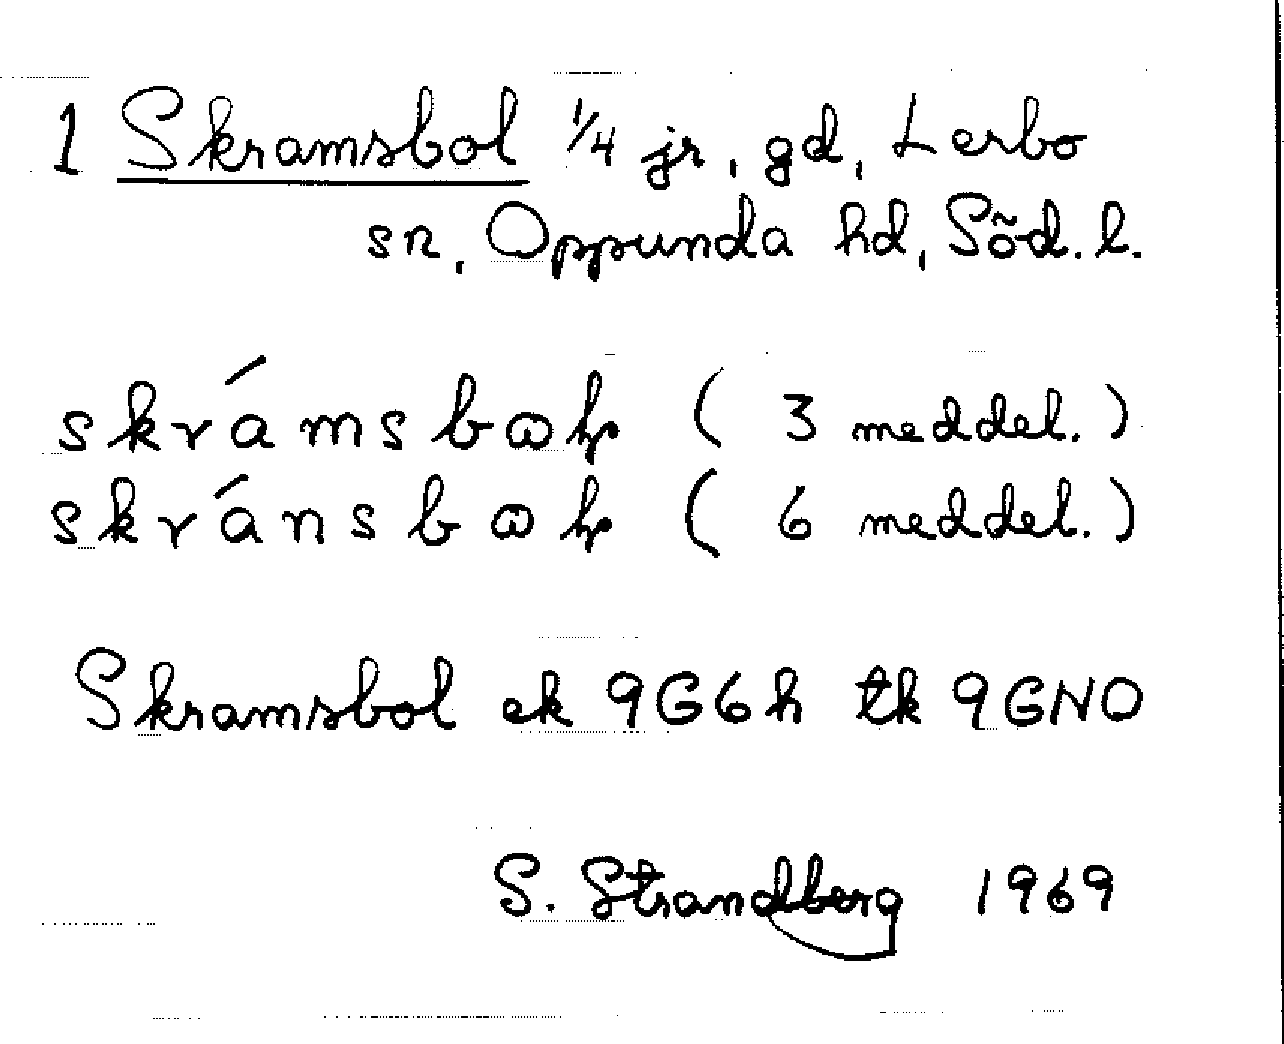 1 Skramsbol 1/4 jr, gd, Lerbo
sn, Oppunda hd, Söd. l.
(3 meddel.)
(6 meddel.)
Skramsbol ek 9G6h tk 9GNO
S. Strandberg 1969